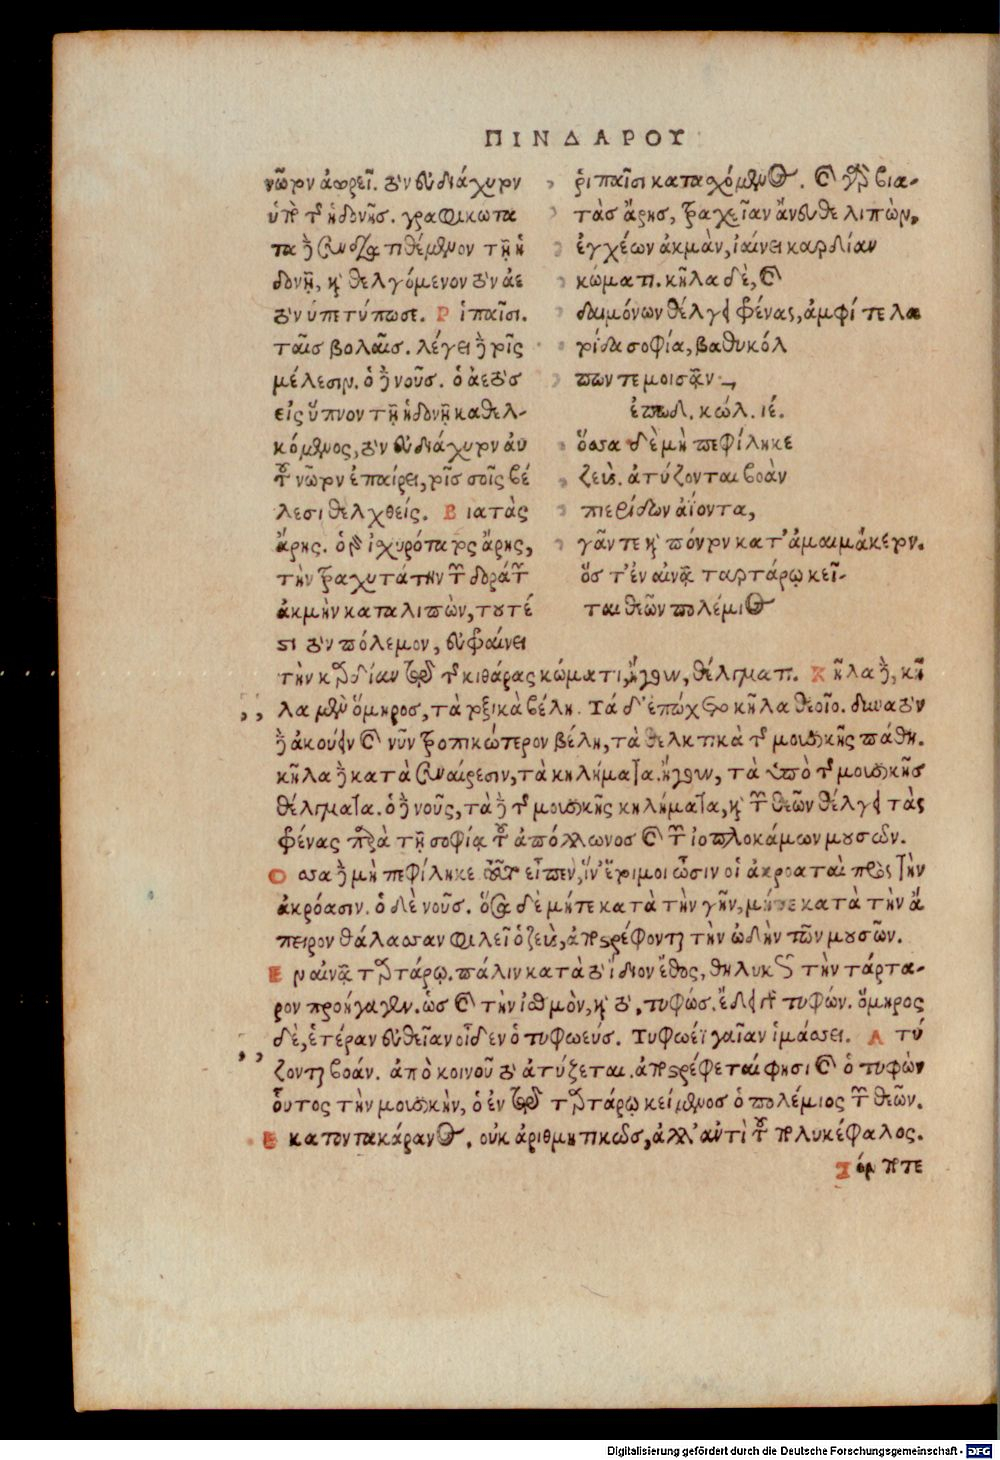 ΠΙΝΔΑΡΟΥ
νῶτον ἀφρεῖ. τὸν εὐδιάχυτον
ὑπὸ τῆς ἡδονῆς. γραφικώτατα
τα δὲ συνδιατιθέμενον τῇ ἡ
δονῇ, καὶ θελγόμενον τὸν ἀε
τὸν ὑπετύπωσε. Ριπαῖσι.
ταῖς βολαῖς. λέγει δὲ τοῖς
μέλεσιν. ὁ δὲ νοῦς. ὁ ἀετὸς
εἰς ὕπνον τῇ ἡδονῇ καθελ-
κόμενος, τὸν εὐδιάχυτον αὐ
τοῦ νῶτον ἐπαίρει, τοῖς σοῖς βέ
λεσι θελχθείς. Βιατὰς
ἄρης. ὁ γὰρ ἰσχυρότατος ἄρης,
τὴν τραχυτάτην τῶν δοράτων
ἀκμὴν καταλιπὼν, τουτέ
στι τὸν πόλεμον, εὐφραίνει
ριπαῖσι κατασχόμενος. καὶ γὰρ βια-
τὰς ἄρης, τραχεῖαν ἄνευθε λιπὼν,
ἐγχέων ἀκμὰν, ἰαίνει καρδίαν
κώματι. κῆλα δὲ, καὶ
δαιμόνων θέλγει φρένας, ἀμφί τε λα
τοίδα σοφίᾳ, βαθυκόλ
πων τε μοισᾶν.
ἐπωδ. κώλ. ιέ.
ὅσσα δὲ μὴ πεφίληκε
ζεὺς. ἀτύζονται βοὰν
πιερίδων ἀΐοντα,
γᾶν τε καὶ πόντον κατ' ἀμαιμάκετον.
ὅς τ' ἐν αἰνᾷ ταρτάρῳ κεῖ-
ται θεῶν πολέμιος
τὴν καρδίαν ἐν τῷ τῆς κιθάρας κώματι, ἤγουν, θέλγματι. Κῆλα δὲ, κῆ
λα μὲν ὅμηρος, τὰ τοξικὰ βέλη. Τὰ δ' ἐπώχετο κῆλα θεοῖο. δύναται
δὲ ἀκούειν καὶ νῦν τροπικώτερον βέλη, τὰ θελκτικὰ τῆς μουσικῆς πάθη.
κῆλα δὲ κατὰ συναίρεσιν, τὰ κηλήματα. ἤγουν, τὰ ὑπὸ τῆς μουσικῆς
θέλγματα. ὁ δὲ νοῦς, τὰ δὲ τῆς μουσικῆς κηλήματα, καὶ τῶν θεῶν θέλγει τὰς
φρένας παρὰ τῇ σοφίᾳ τοῦ ἀπόλλωνος καὶ τῶν ἰοπλοκάμων μουσῶν.
Οσσα δὲ μὴ πεφίληκε τοῦτο εἶπεν, ἵν' ἔτοιμοι ὦσιν οἱ ἀκροαταὶ πρὸς τὴν
ἀκρόασιν. ὁ δὲ νοῦς. ὅσα δὲ μήτε κατὰ τὴν γῆν, μήτε κατὰ τὴν ἄ
πειρον θάλασσαν φιλεῖ ὁ ζεὺς, ἀποστρέφονται τὴν ὠδὴν τῶν μουσῶν.
Εν αἰνᾷ ταρτάρῳ. πάλιν κατὰ τὸ ἴδιον ἔθος, θηλυκῶς τὴν τάρτα-
ρον προήγαγεν. ὡς καὶ τὴν ἰσθμὸν, καὶ τὸ, τυφώς. ἔδει γὰρ τυφών. ὅμηρος
δὲ, ἑτέραν εὐθεῖαν οἶδεν ὁ τυφωεύς. Τυφωέϊ γαῖαν ἱμάσσει. Ατύ
ζονται βοάν. ἀπὸ κοινοῦ τὸ ἀτύζεται. ἀποστρέφεται φησὶ καὶ ὁ τυφὼν
οὗτος τὴν μουσικὴν, ὁ ἐν τῷ ταρτάρῳ κείμενος ὁ πολέμιος τῶν θεῶν.
Εκατοντακάρανος. οὐκ ἀριθμητικῶς, ἀλλ' ἀντὶ τοῦ πολυκέφαλος.
Τόν ποτε
Digitalisierung gefördert durch die Deutsche Forschungsgemeinschaft - DFG